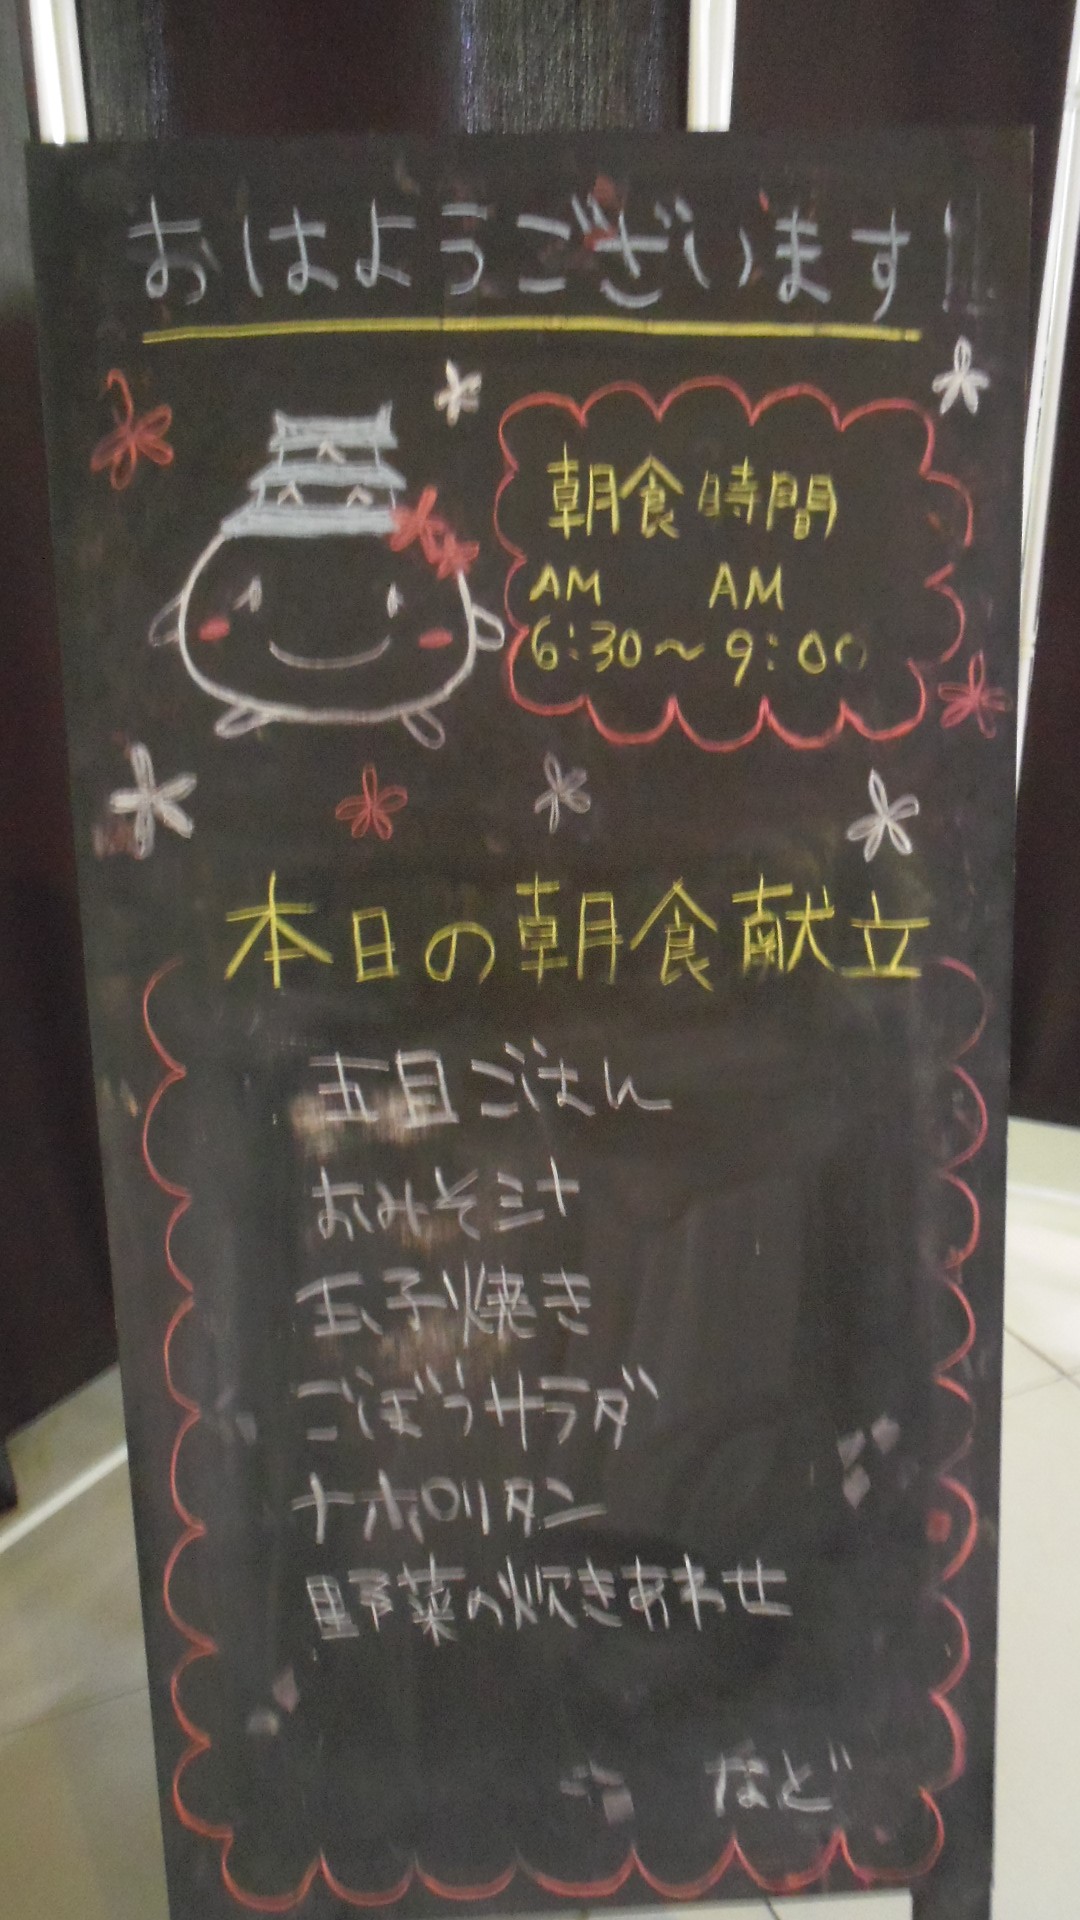 おはようございます!
朝食時間
AM AM
6:30～9:00
本日の朝食献立
五目ごはん
おみそ汁
玉子焼き
ごぼうサラダ
ナポリタン
野菜の炊きあわせ
など